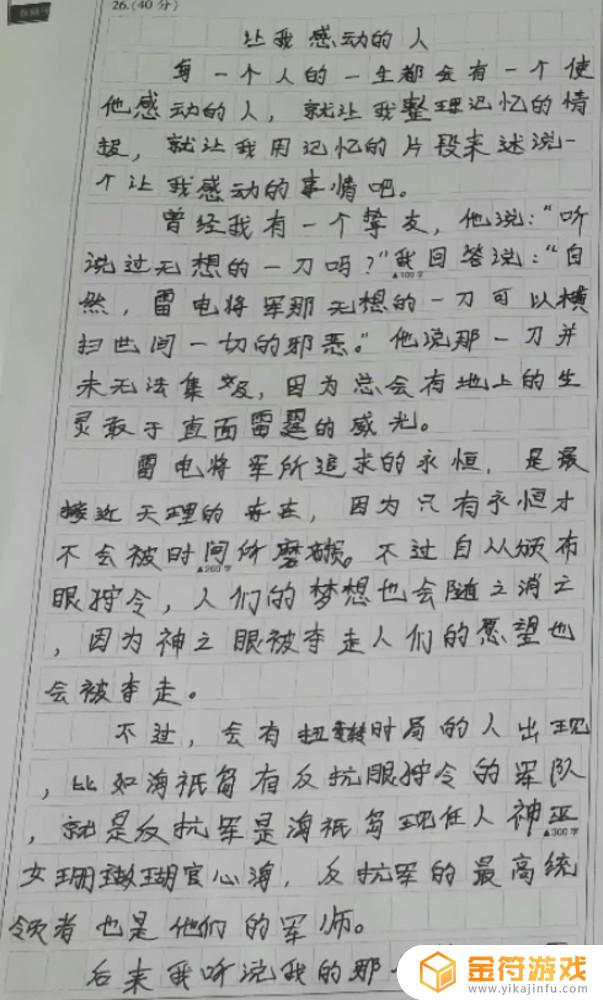 26.(40分)
让我感动的人
每一个人的一生都会有一个使
他感动的人，就让我整理记忆的情
报，就让我用记忆的片段来述说一
个让我感动的事情吧。
曾经我有一个挚友，他说：“听
说过无想的一刀吗？”我回答说：“自
▲100字
然，雷电将军那无想的一刀可以横
扫世间一切的邪恶。”他说那一刀并
未无法集，因为总会有地上的生
灵敢于直面雷霆的威光。
雷电将军所追求的永恒，是最
接近天理的存在，因为只有永恒才
不会被时间所磨损。不过自从颁布
▲200字
眼狩令，人们的梦想也会随之消亡
，因为神之眼被夺走人们的愿望也
会被夺走。
不过，会有扭转时局的人出现
，比如海祇岛有反抗眼狩令的军队
，就是反抗军是海祇岛现任人神巫
▲300字
女珊瑚宫心海，反抗军的最高统
领者也是他们的军师。
后来我听说我的那
金符游戏
www.yikajinfu.com